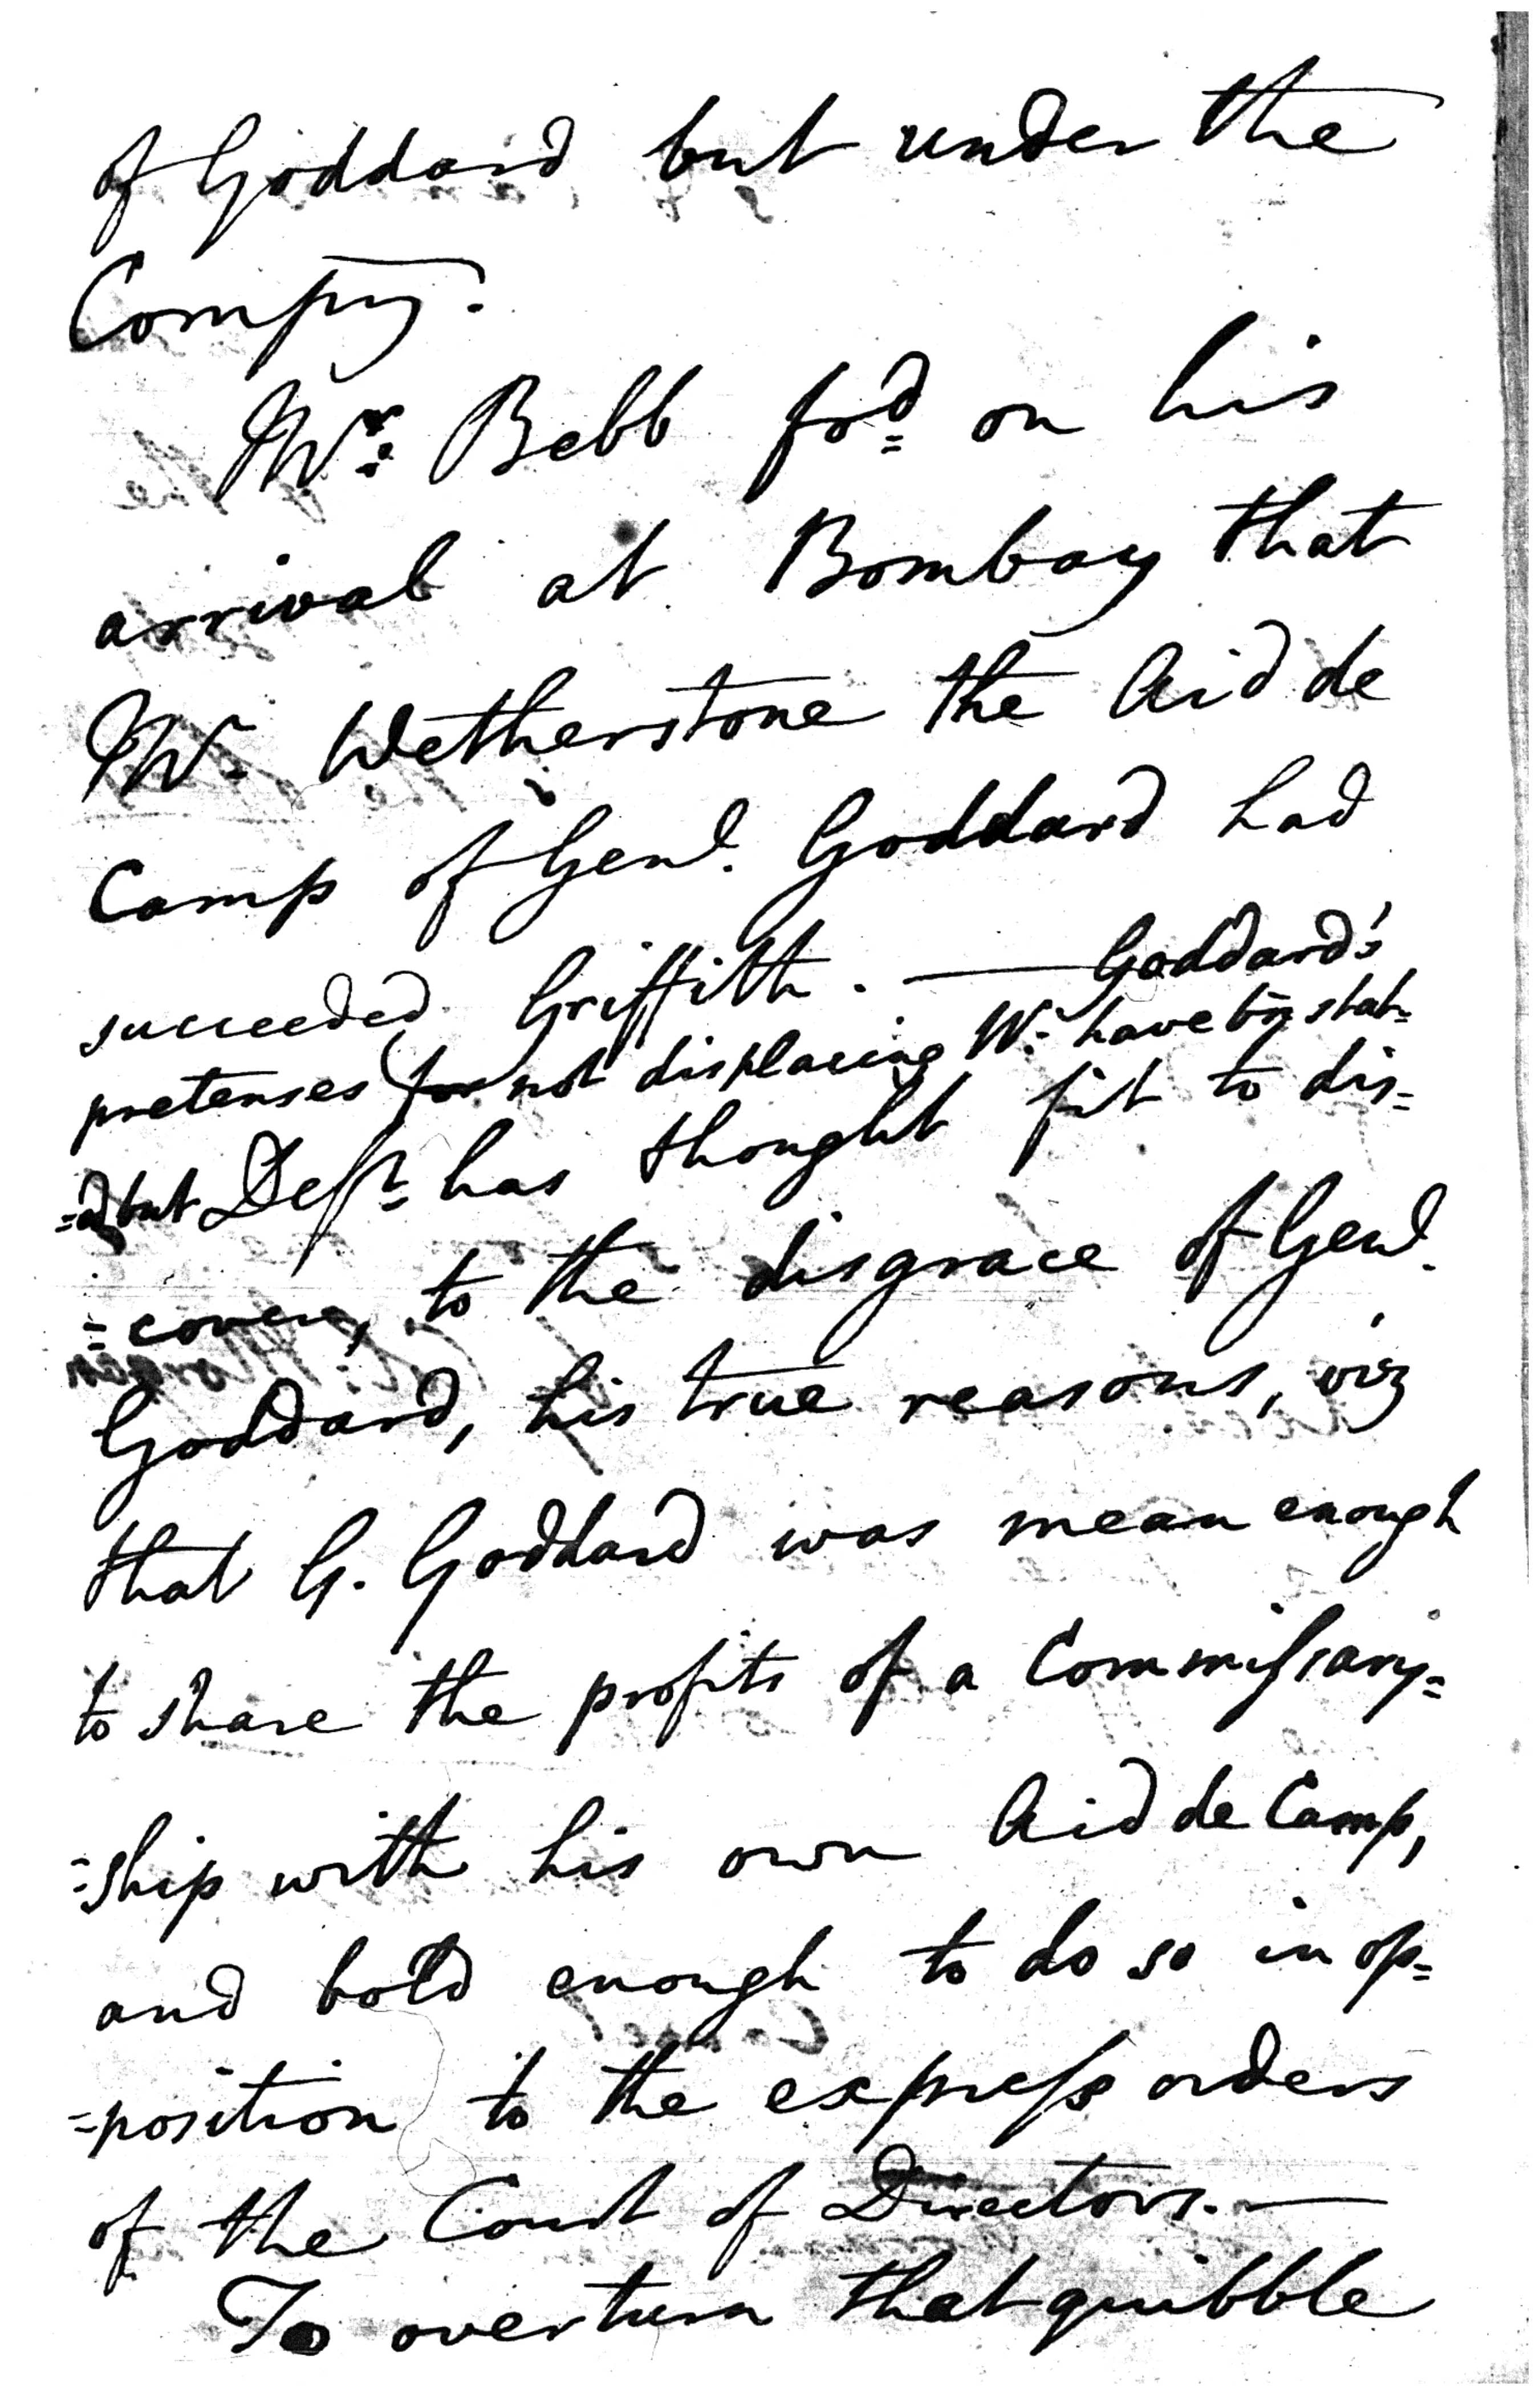 of Goddard but under the
Compy.
Mr. Bebb fod. on his
arrival at Bombay that
Mr. Wetherstone the Aid de
Camp of Genl. Goddard had
succeeded Griffith. — Goddard's
pretenses for not displacing W. have bn stat=
=d but Deft. has thought fit to dis=
=cover, to the disgrace of Genl.
Goddard, his true reasons, viz
that G. Goddard was mean enough
to share the profits of a Commissary=
=ship with his own Aid de Camp,
and bold enough to do so in op=
=position to the express orders
of the Court of Directors. —
To overturn that quibble